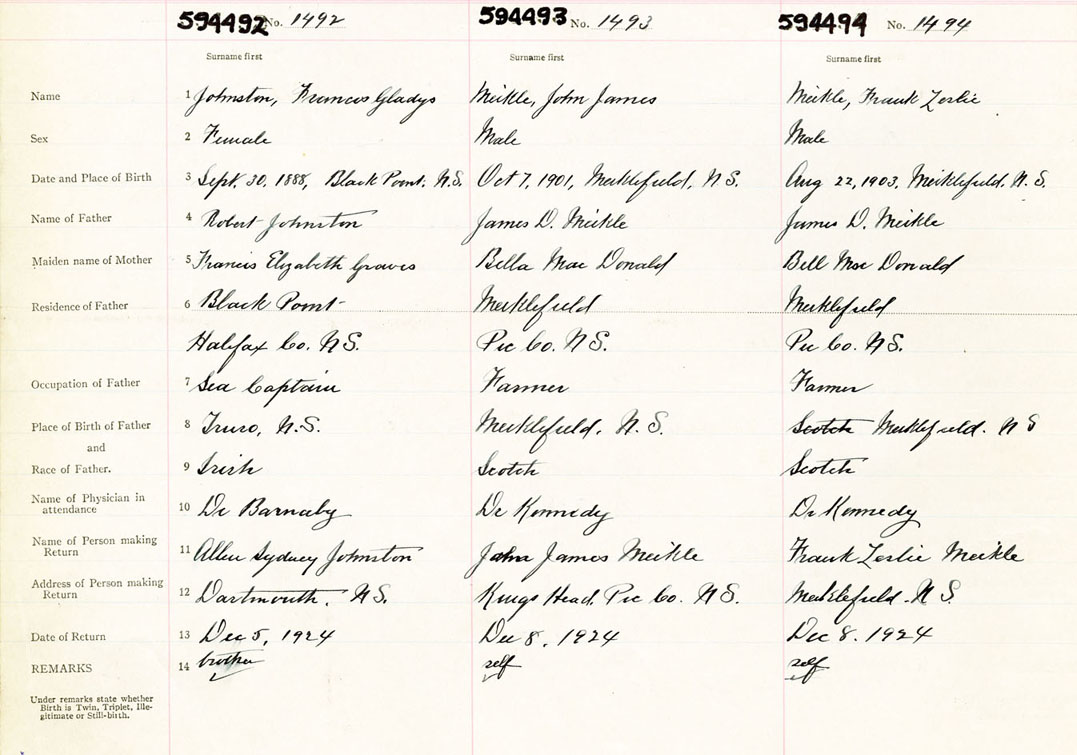 594492 No. 1492 594493 No. 1493 594494 No. 1494
Surname first Surname first Surname first
Name 1 Johnston, Frances Gladys Meikle, John James Meikle, Frank Leslie
Sex 2 Female Male Male
Date and Place of Birth 3 Sept. 30, 1888, Black Point, N.S. Oct 7, 1901, Meiklefield, N.S. Aug 22, 1903, Meiklefield, N.S.
Name of Father 4 Robert Johnston James D. Meikle James D. Meikle
Maiden name of Mother 5 Francis Elizabeth Graves Bella Mac Donald Bell Mac Donald
Residence of Father 6 Black Point Meiklefield Meiklefield
Halifax Co. N.S. Pic Co. N.S. Pic Co. N.S.
Occupation of Father 7 Sea Captain Farmer Farmer
Place of Birth of Father 8 Truro, N.S. Meiklefield, N.S. Scotch Meiklefield. N S
and
Race of Father. 9 Irish Scotch Scotch
Name of Physician in
attendance 10 Dr Barnaby Dr Kennedy Dr Kennedy
Name of Person making
Return 11 Allen Sydney Johnston John James Meikle Frank Leslie Meikle
Address of Person making
Return 12 Dartmouth, N.S. Kings Head, Pic Co. N.S. Meiklefield. N S.
Date of Return 13 Dec 5, 1924 Dec 8, 1924 Dec 8. 1924
REMARKS 14 brother self self
Under remarks state whether
Birth is Twin, Triplet, Ille-
gitimate or Still-birth.